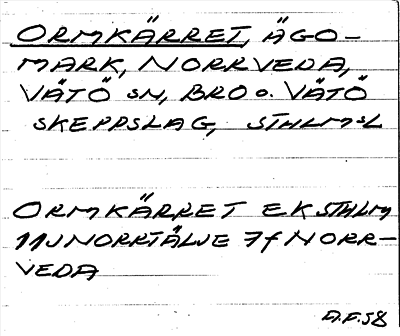 ORMKÄRRET, ÄGO-
MARK, NORRVEDA,
VÄTÖ SN, BRO O. VÄTÖ
SKEPPSLAG, STHLMSL
ORMKÄRRET EK STHLM
11J NORRTÄLJE 7f NORR-
VEDA
A.F. 58